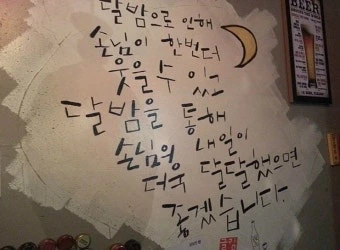 달밤으로 인해
손님이 한번더
웃을수 있고
달밤을 통해
손님의 내일이
더욱 달달했으면
좋겠습니다.
BEER